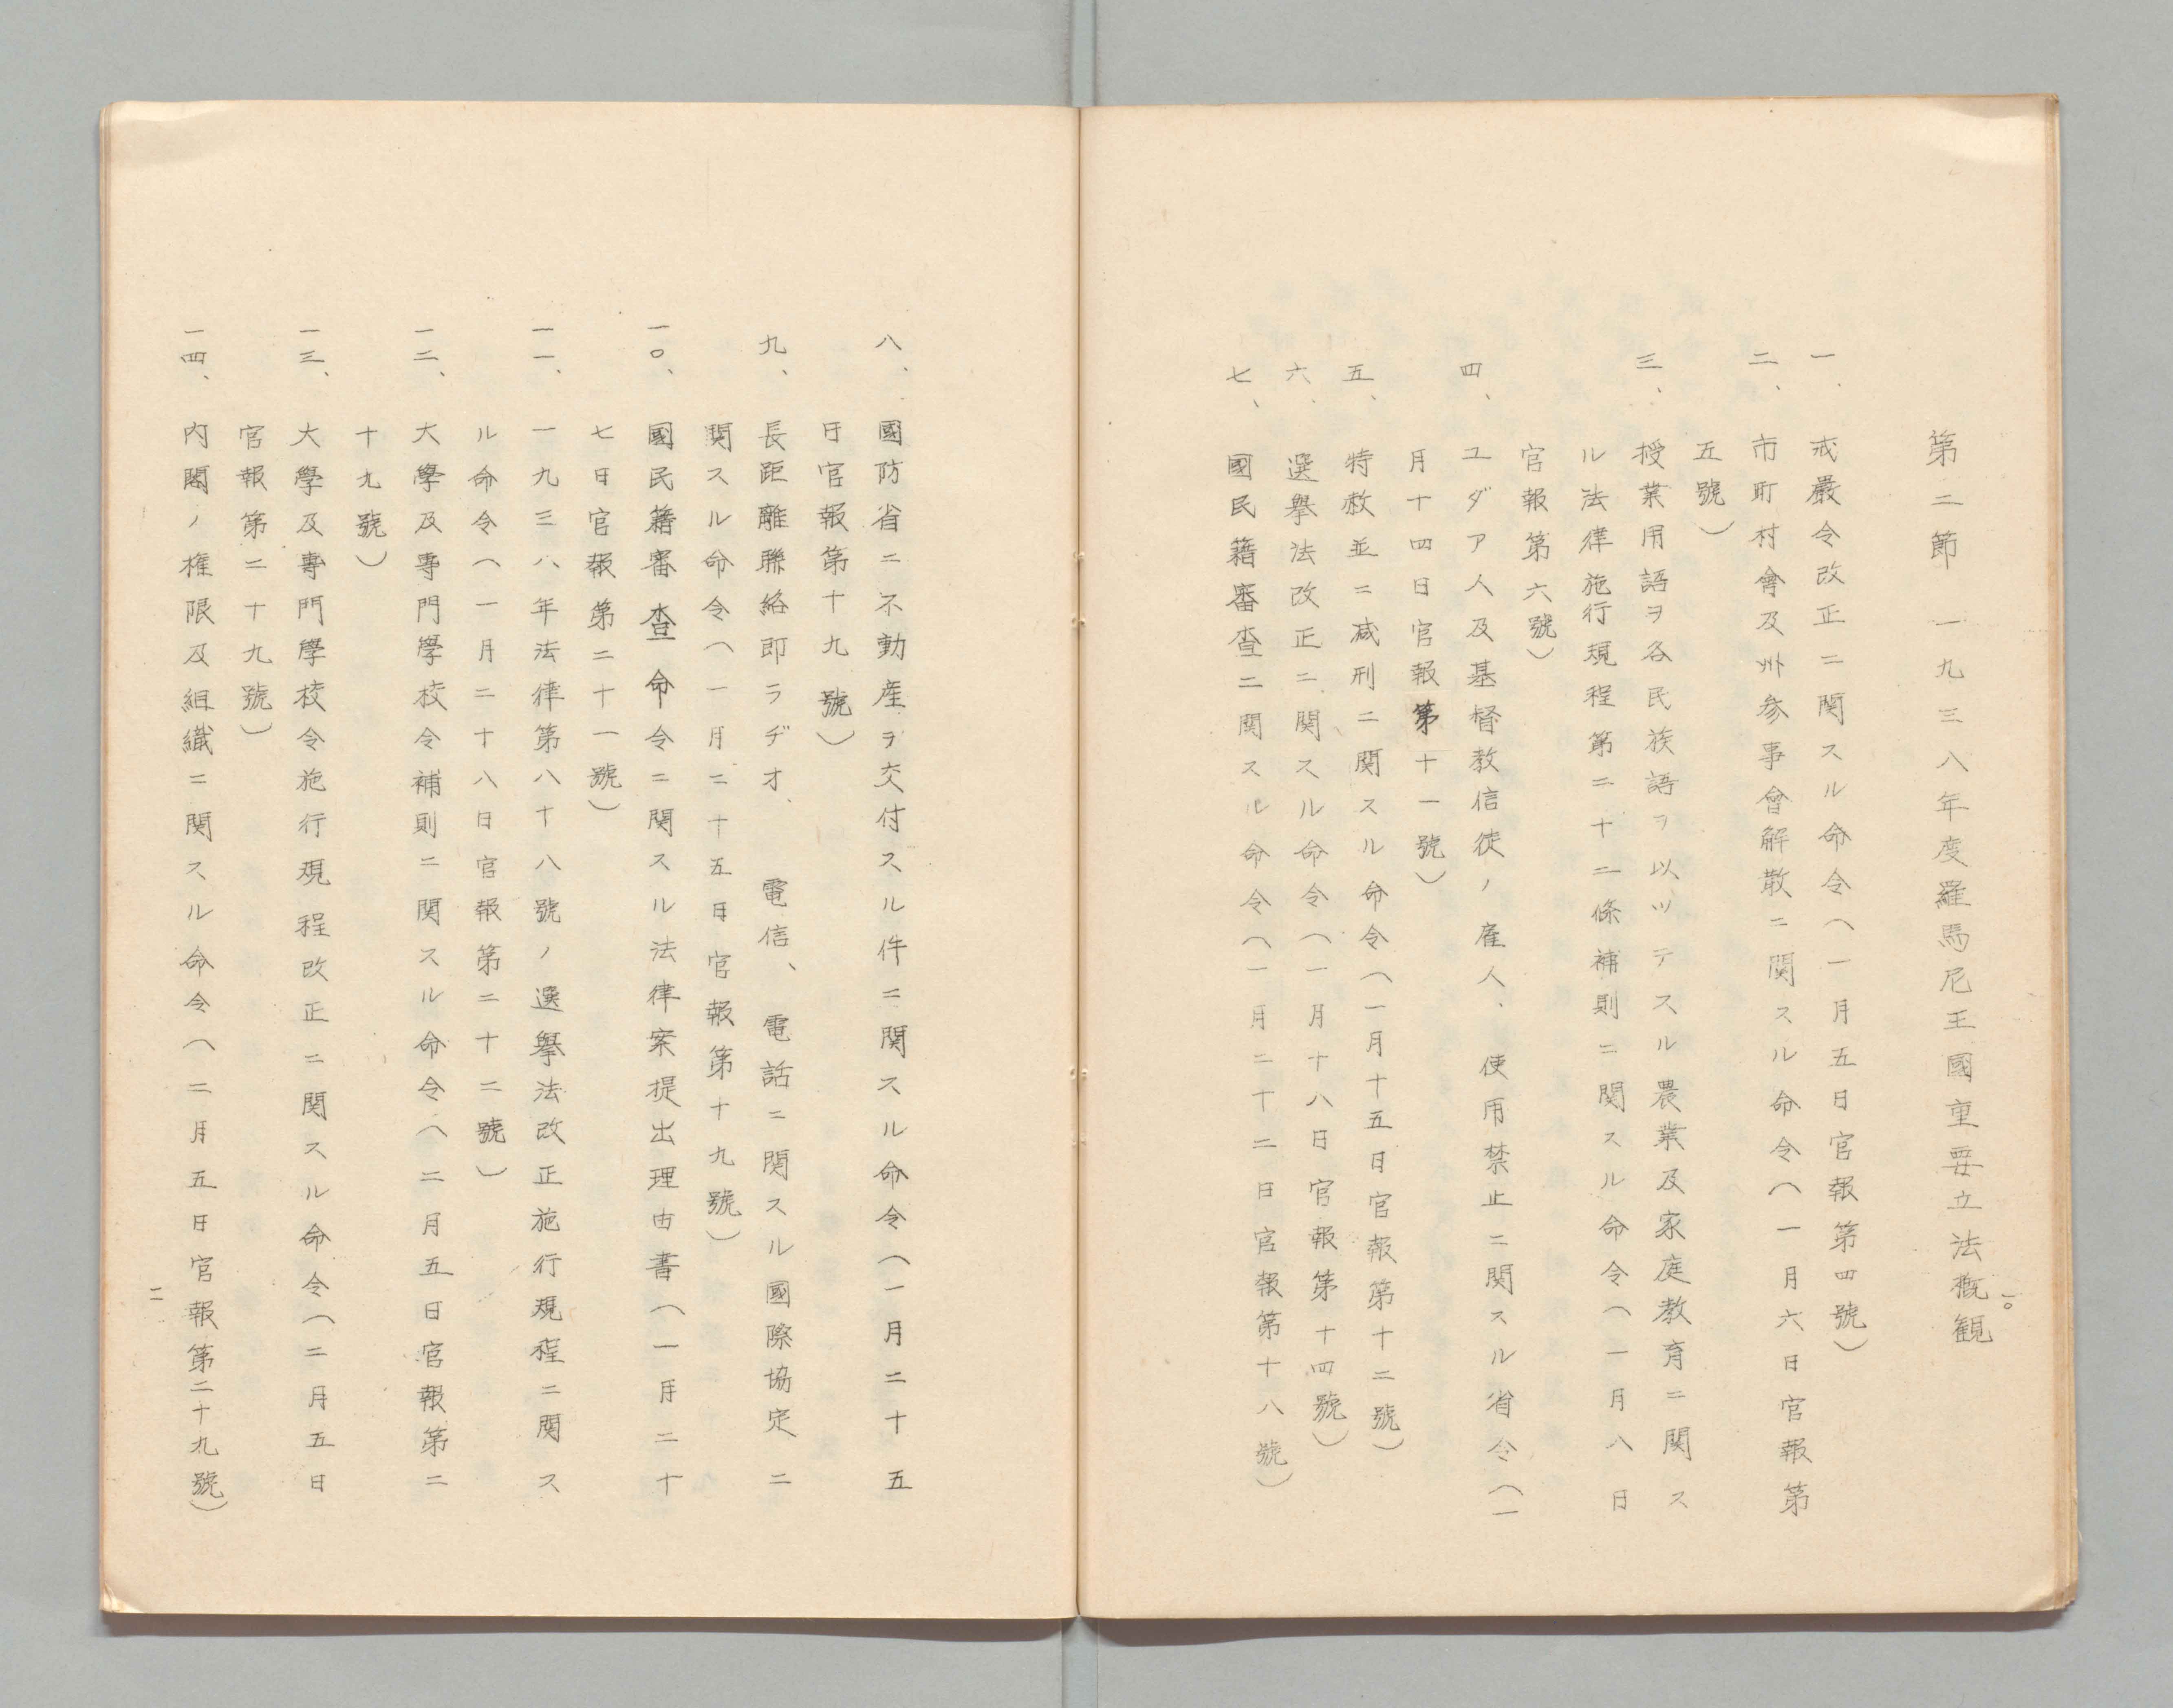 第二節　一九三八年度羅馬尼王國重要立法概観
一、戒嚴令改正ニ関スル命令（一月五日官報第四號）
二、市町村會及州参事會解散ニ関スル命令（一月六日官報第
五號）
三、授業用語ヲ各民族語ヲ以ツテスル農業及家庭教育ニ関ス
ル法律施行規程第二十二條補則ニ関スル命令（一月八日
官報第六號）
四、ユダア人及基督教信徒ノ雇人、使用禁止ニ関スル省令（一
月十四日官報第十一號）
五、特赦並ニ减刑ニ関スル命令（一月十五日官報第十二號）
六、選擧法改正ニ関スル命令（一月十八日官報第十四號）
七、國民籍審査ニ関スル命令（一月二十二日官報第十八號）
一〇
八、國防省ニ不動産ヲ交付スル件ニ関スル命令（一月二十五
日官報第十九號）
九、長距離聯絡即ラヂオ、電信、電話ニ関スル國際協定ニ
関スル命令（一月二十五日官報第十九號）
一〇、國民籍審査命令ニ関スル法律案提出理由書（一月二十
七日官報第二十一號）
一一、一九三八年法律第八十八號ノ選擧法改正施行規程ニ関ス
ル命令（一月二十八日官報第二十二號）
一二、大學及專門學校令補則ニ関スル命令（二月五日官報第二
十九號）
一三、大學及專門學校令施行規程改正ニ関スル命令（二月五日
官報第二十九號）
一四、内閣ノ権限及組織ニ関スル命令（二月五日官報第二十九號）
一一